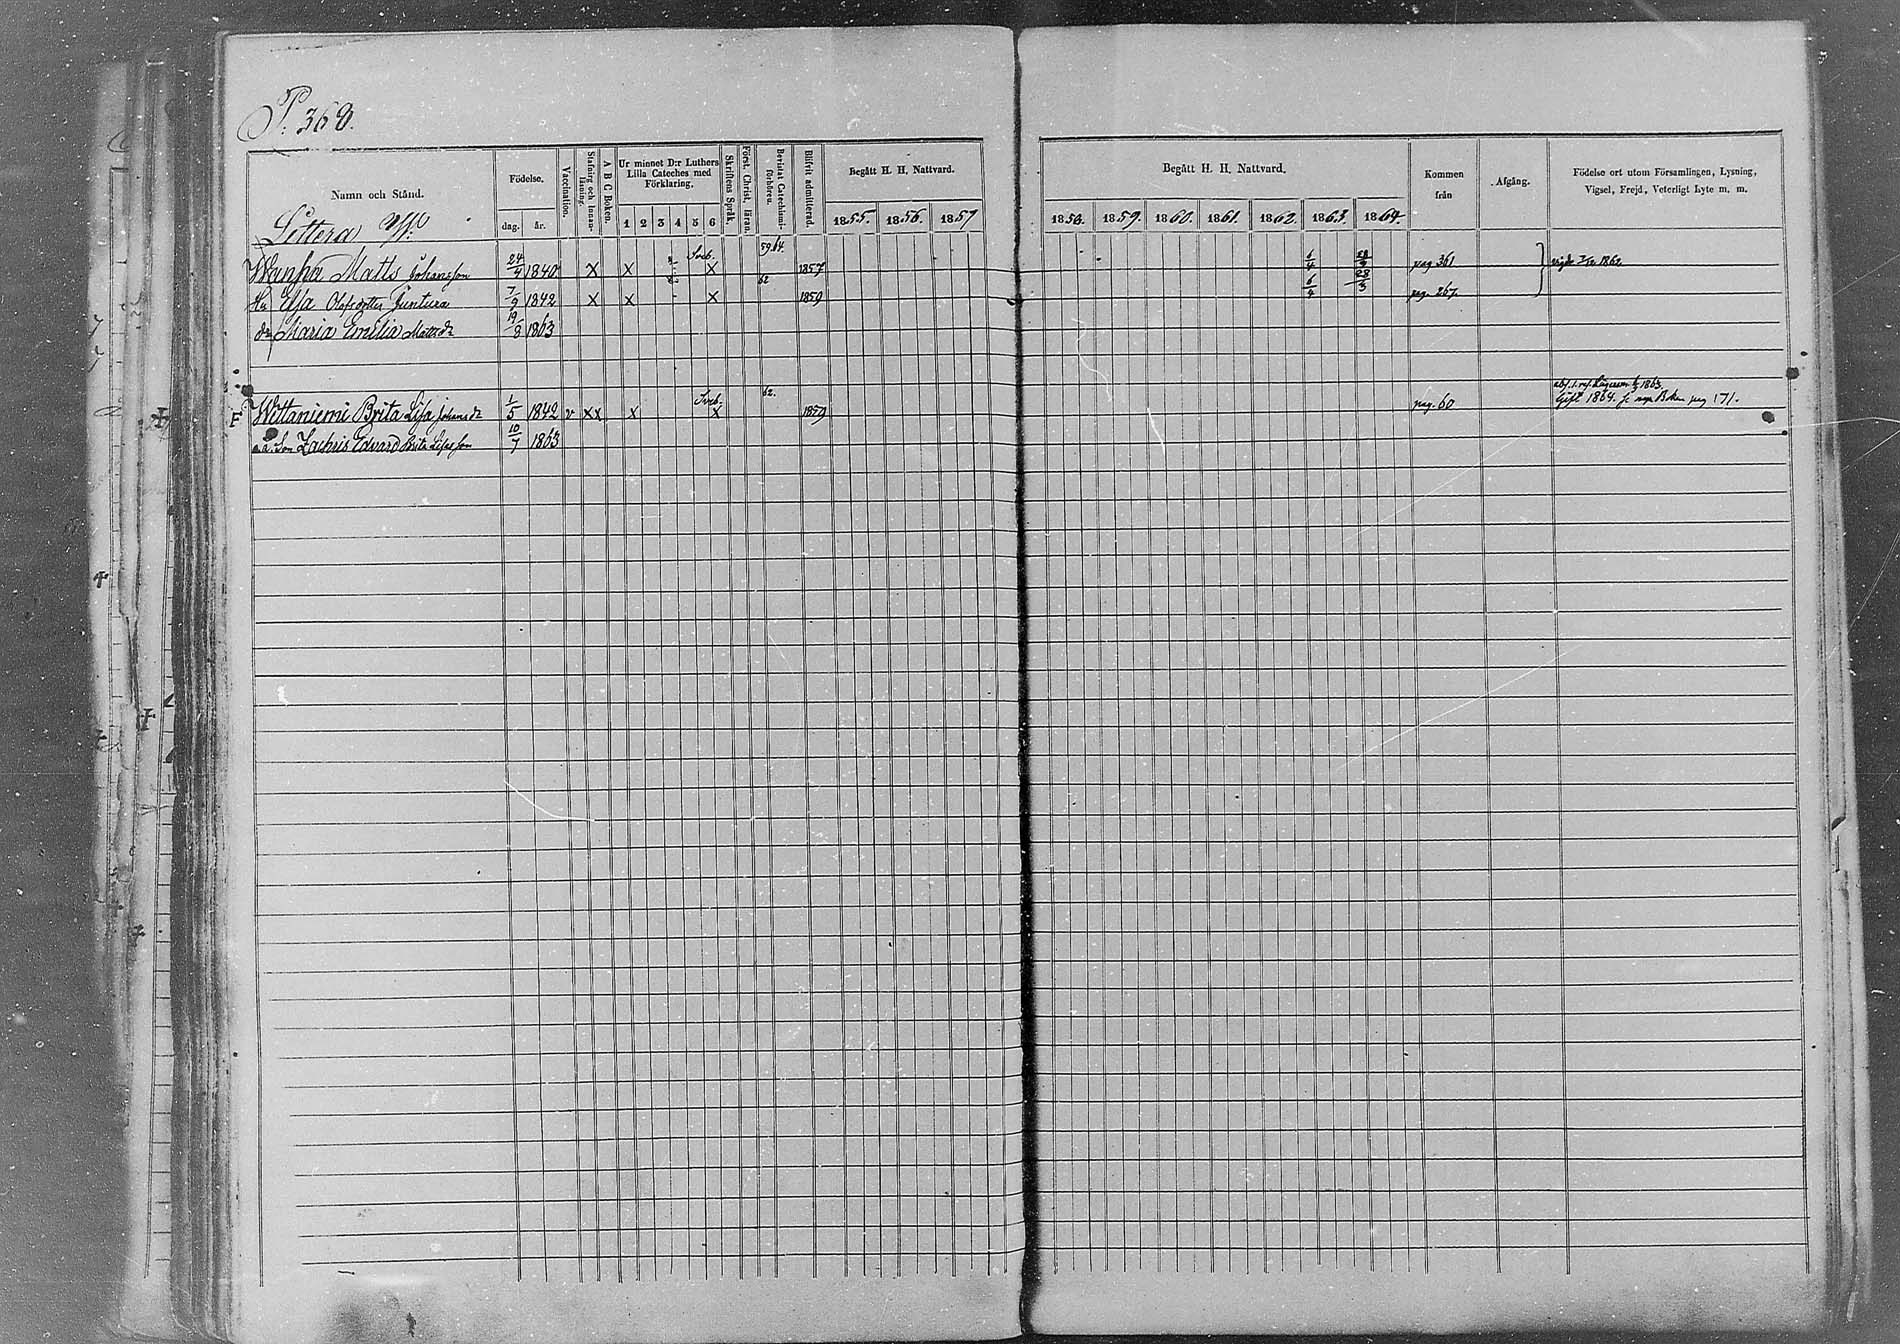 P. 368.
Namn och Stånd.
Födelse.
dag. år.
Vaccination.
Stafning och Innan-
läsning.
A B C Boken.
Ur minnet D:r Luthers
Lilla Cateches med
Förklaring.
1 2 3 4 5 6
Skriftens Språk.
Först. Christ. läran.
Bevistat Catechismi-
förhören.
Blifvit admitterad.
Begått H. H. Nattvard.
1855. 1856. 1857
Begått H. H. Nattvard.
1858. 1859. 1860. 1861. 1862. 1863. 1864.
Kommen
från
Afgång.
Födelse ort utom Församlingen, Lysning,
Vigsel, Frejd, Veterligt Lyte m. m.
Littera
59.64.
Matts Johansson 24/9 1840 X X Sveb. X 1857 6/4 28/3 pag 361 1862
62
Hu Lisa Olofsdotter Juntura 7/9 1842 X X X 1859 6/4 28/3 pag. 267.
dr Maria Emilia Matsdr 19/8 1863
62.
1863
F Wittaniemi Brita Lisa Johansdr 1/5 1842 v XX X Sveb. X 1859 pag. 60 Gift 1864. pag 171.
o.ä. Son Zachris Edvard Brita Lisasson 10/7 1863